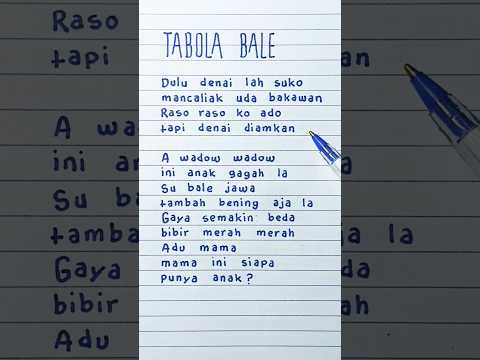 TABOLA BALE
Dulu denai lah suko
mancaliak uda bakawan
Raso raso ko ado
tapi denai diamkan
A wadow wadow
ini anak gagah la
Su bale jawa
tambah bening aja la
Gaya semakin beda
bibir merah merah
Adu mama
mama ini siapa
punya anak?